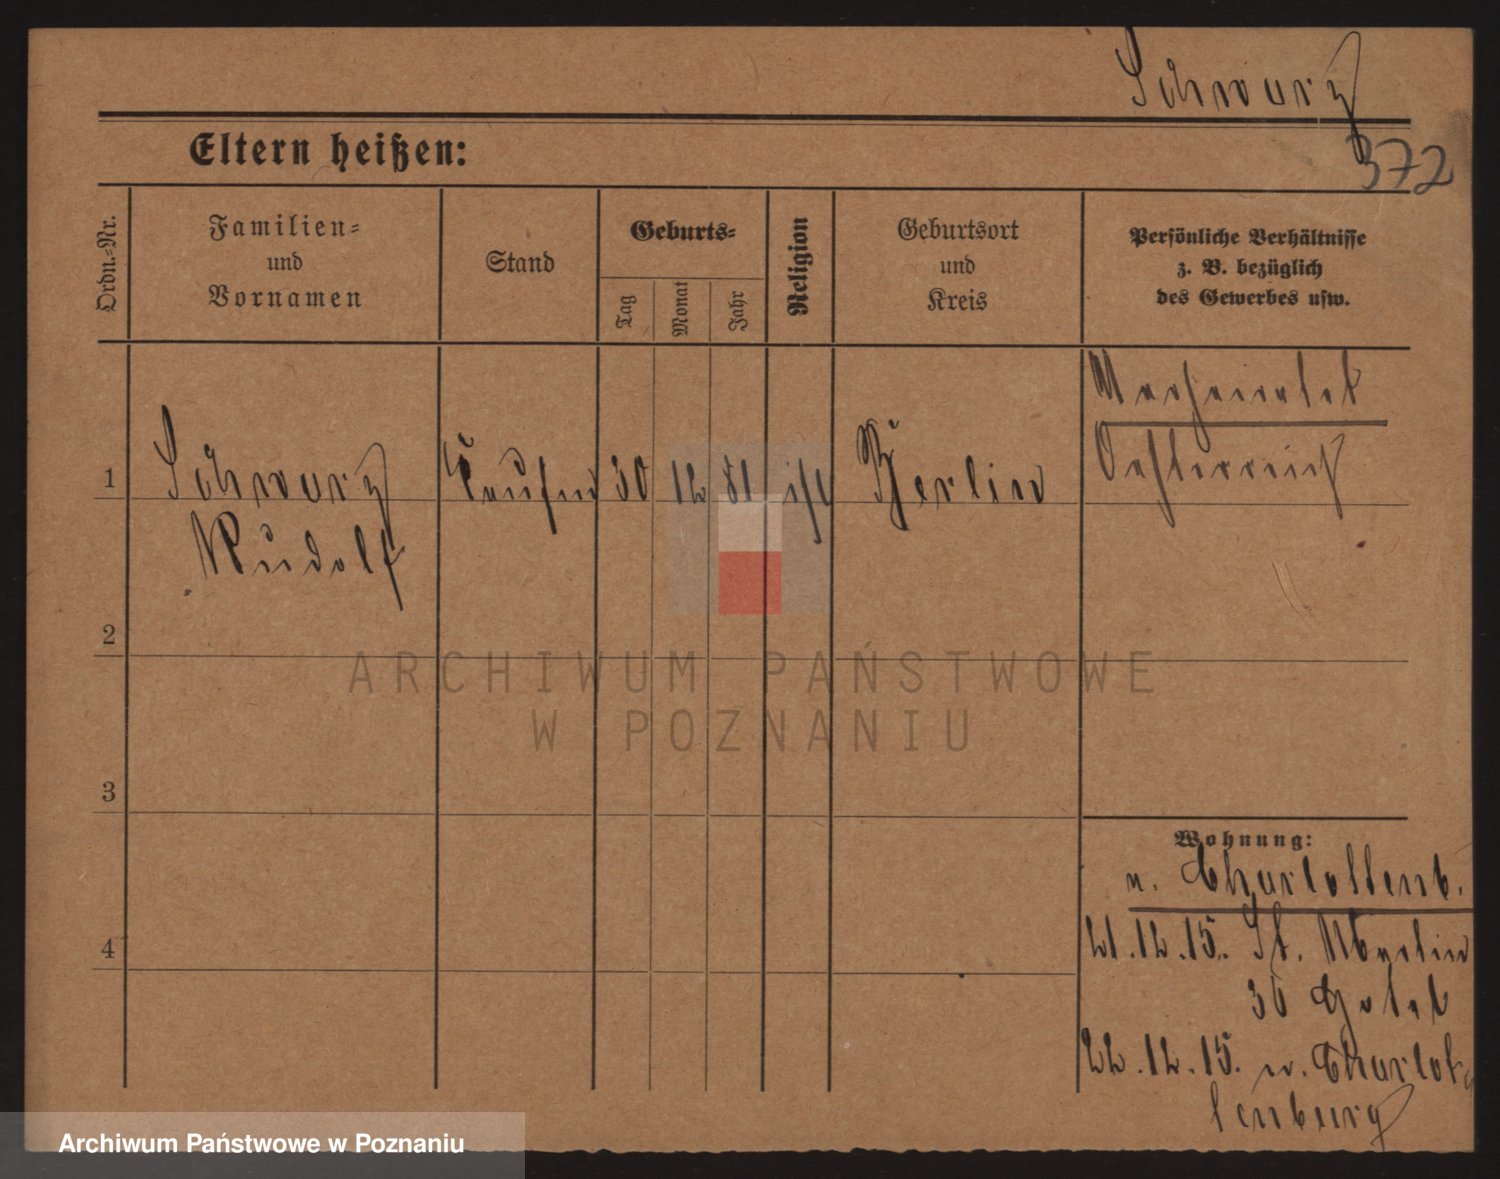 Schwarz
372
Eltern heißen:
Ordn.-Nr.
Familien-
und
Vornamen
Stand
Geburts-
Tag
Monat
Jahr
Religion
Geburtsort
und
Kreis
Persönliche Verhältnisse
z. B. bezüglich
des Gewerbes usw.
Verheiratet
Oesterreich
1
Schwarz
Rudolf
Kaufm
30
12
81
isr
Berlin
2
3
4
Wohnung:
n. Charlottenb.
21.12.15. St. Martin
36 Hotel
22.12.15. n. Charlot-
tenburg
ARCHIWUM PAŃSTWOWE
W POZNANIU
Archiwum Państwowe w Poznaniu